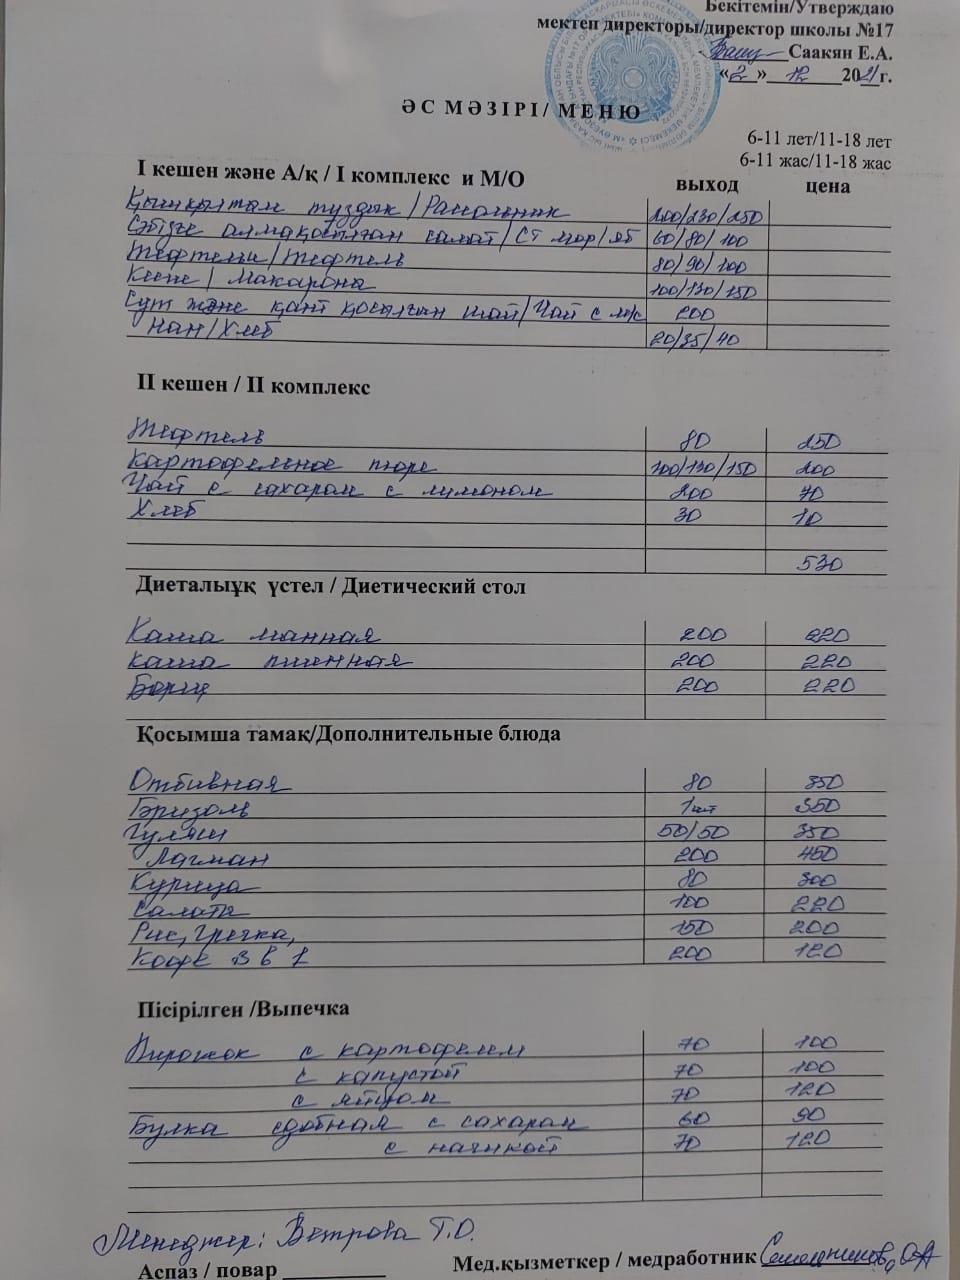 Бекітемін/Утверждаю
мектеп директоры/директор школы №17
Саакян Е.А.
«2» 12 2021г.
ӘС МӘЗІРІ/ МЕНЮ
6-11 лет/11-18 лет
6-11 жас/11-18 жас
І кешен және А/қ / І комплекс и М/О выход цена
Қышқылтым тұздық/Рассольник 200/230/250
Сәбізге алмақосылған салат/Ст мор/яб 60/80/100
Тефтели/Тефтель 80/90/100
Кеспе/Макароны 100/130/150
Сүт және қант қосылған шай/Чай с м/с 200
Нан/Хлеб 20/35/40
ІІ кешен / ІІ комплекс
Тефтель 80 250
Картофельное пюре 100/130/150 200
Чай с сахаром с лимоном 200 70
Хлеб 30 10
530
Диеталыұқ үстел / Диетический стол
Каша манная 200 220
каша пшенная 200 220
Борщ 200 220
Қосымша тамақ/Дополнительные блюда
Отбивная 80 350
Бризоль 1шт 350
Гуляш 50/50 350
Лагман 200 450
Курица 80 300
Салаты 100 220
Рис, Гречка, 150 200
Кофе 3 в 1 200 120
Пісірілген /Выпечка
Пирожок с картофелем 70 100
с капустой 70 100
с яйцом 70 120
Булка сдобная с сахаром 60 90
с начинкой 70 120
Менеджер: Ветрова Т.О.
Мед.қызметкер / медработник
Аспаз / повар